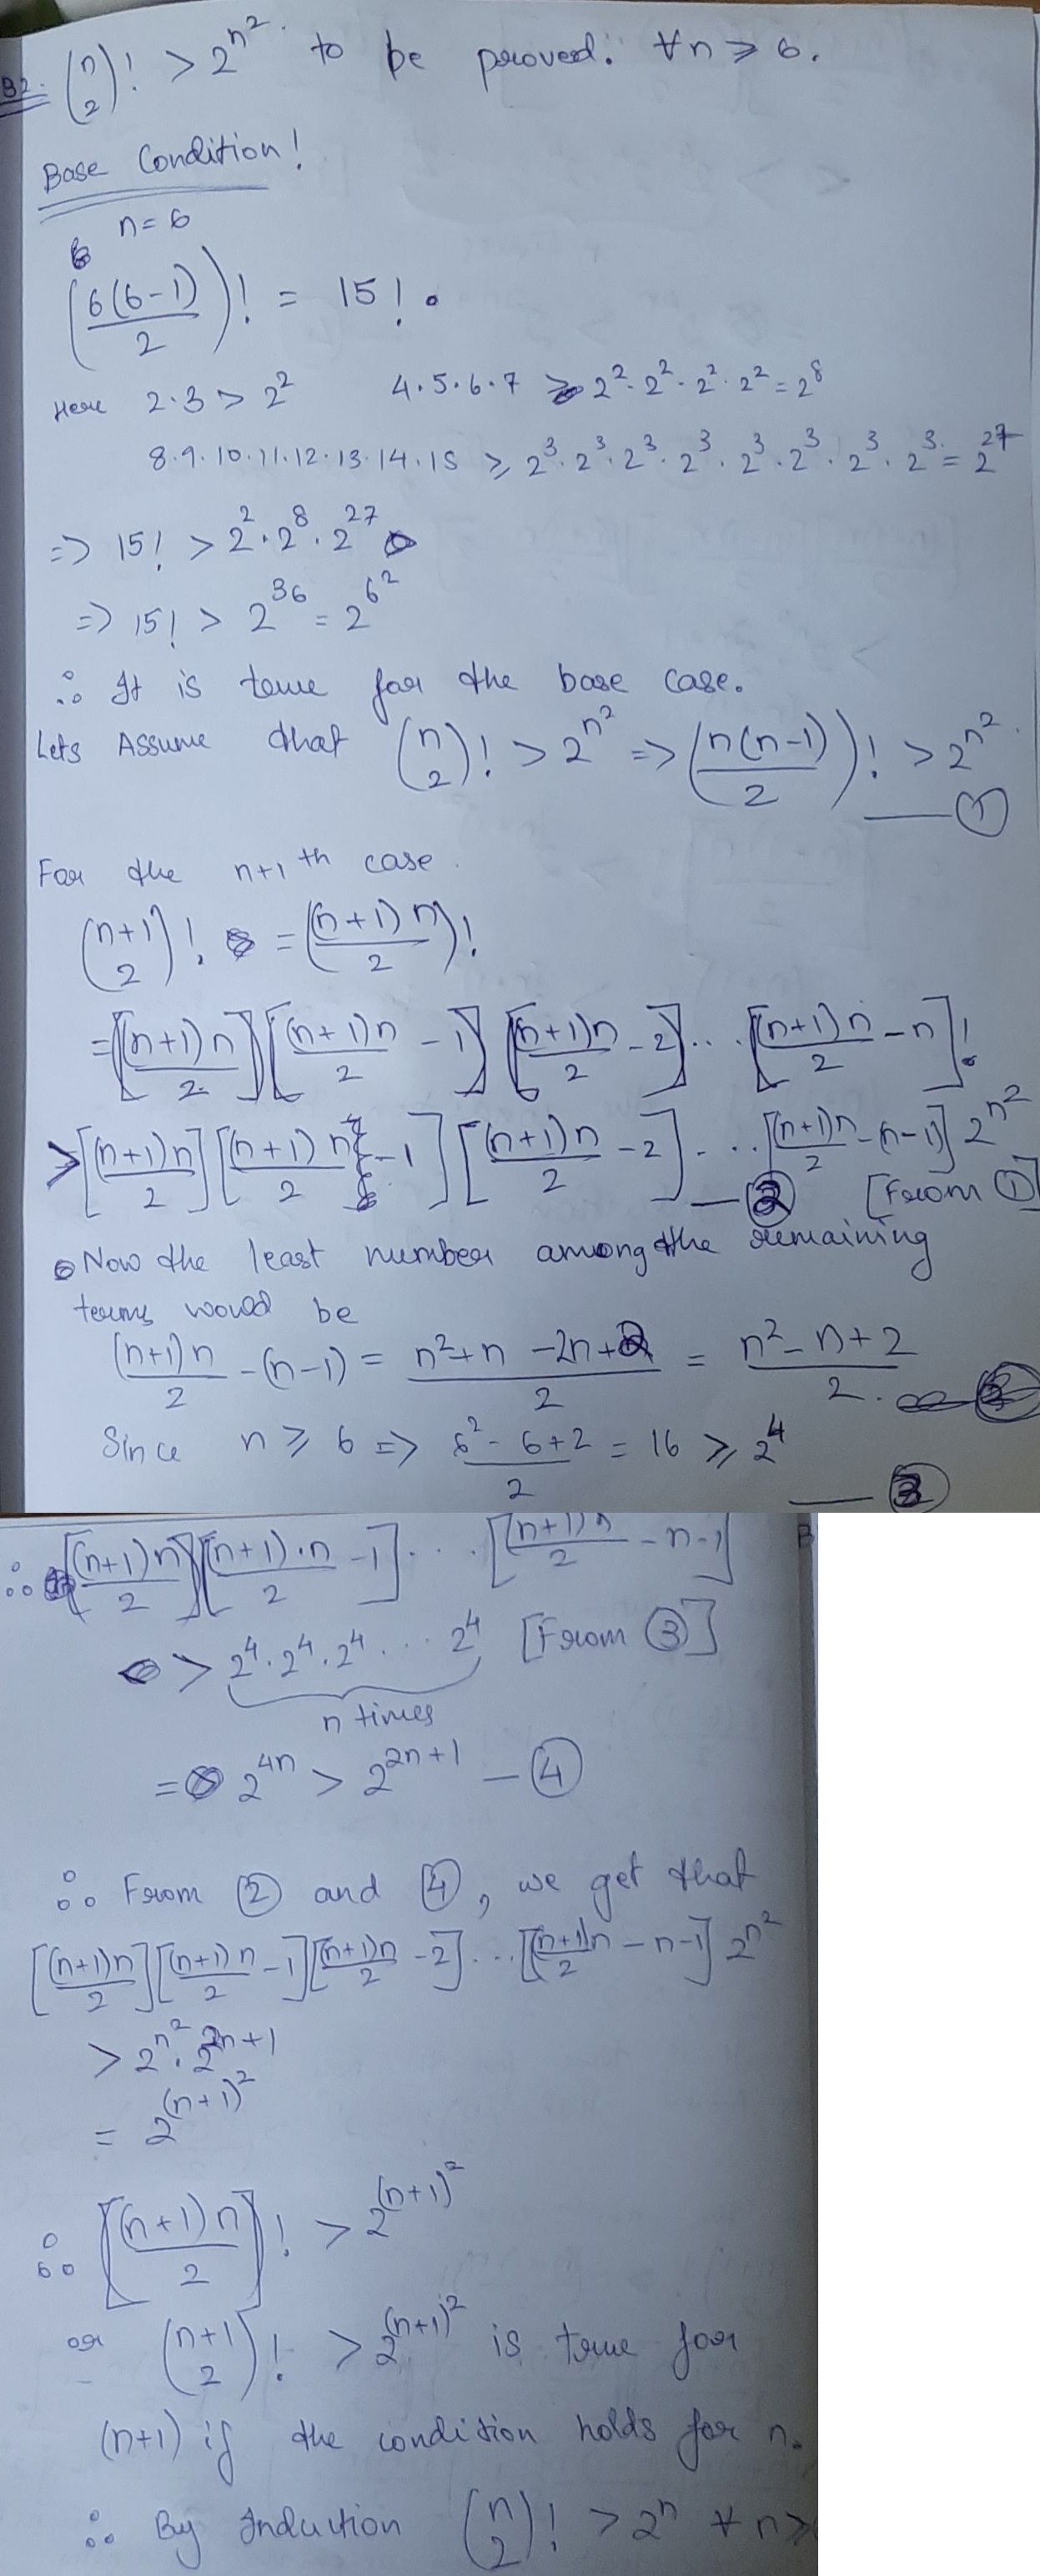 B2. (n 2)! > 2^{n^2} to be proved. ∀n ≥ 6.
Base Condition!
n = 6
(6(6-1)/2)! = 15!.
Here 2·3 > 2^2 4·5·6·7 ≥ 2^2·2^2·2^2·2^2 = 2^8
8·9·10·11·12·13·14·15 ≥ 2^3·2^3·2^3·2^3·2^3·2^3·2^3·2^3 = 2^{27}
=> 15! > 2^2·2^8·2^{27}
=> 15! > 2^{36} = 2^{6^2}
∴ It is true for the base case.
Lets Assume that (n 2)! > 2^{n^2} => (n(n-1)/2)! > 2^{n^2}. — ①
For the n+1^th case.
(n+1 2)! = ((n+1)n/2)!
= [(n+1)n/2][(n+1)n/2 - 1][(n+1)n/2 - 2]... [(n+1)n/2 - n]!
> [(n+1)n/2][(n+1)n/2 - 1][(n+1)n/2 - 2]... [(n+1)n/2 - (n-1)] 2^{n^2}
— ② [From ①]
Now the least number among the remaining
terms would be
(n+1)n/2 - (n-1) = n^2+n-2n+2/2 = n^2-n+2/2.
Since n ≥ 6 => 6^2-6+2/2 = 16 ≥ 2^4
— ③
∴ [(n+1)n/2][(n+1)·n/2 - 1]... [(n+1)n/2 - n-1]
> 2^4·2^4·2^4... 2^4 [From ③]
n times
= 2^{4n} > 2^{2n+1} — ④
∴ From ② and ④, we get that
[(n+1)n/2][(n+1)n/2 - 1][(n+1)n/2 - 2]... [(n+1)n/2 - n-1] 2^{n^2}
> 2^{n^2}·2^{2n+1}
= 2^{(n+1)^2}
∴ [(n+1)n/2]! > 2^{(n+1)^2}
or (n+1 2)! > 2^{(n+1)^2} is true for
(n+1) if the condition holds for n.
∴ By Induction (n 2)! > 2^n ∀ n ≥